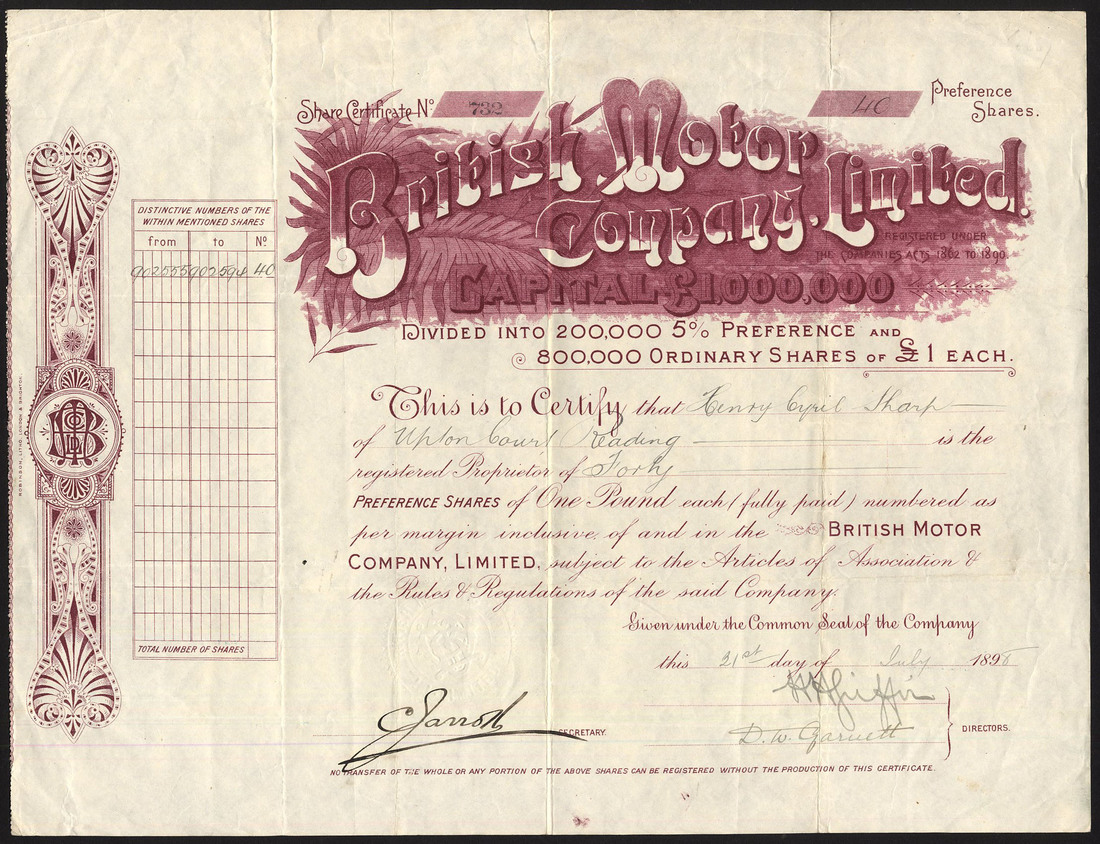 Share Certificate No 732
40 Preference Shares.
British Motor Company, Limited.
REGISTERED UNDER
THE COMPANIES ACTS 1862 TO 1890
CAPITAL £1,000,000
DIVIDED INTO 200,000 5% PREFERENCE AND
800,000 ORDINARY SHARES OF £1 EACH.
DISTINCTIVE NUMBERS OF THE
WITHIN MENTIONED SHARES
from to No
902555 902594 40
TOTAL NUMBER OF SHARES
ROBINSON, LITHO, LONDON & BRIGHTON.
This is to Certify that Henry Cyril Sharp
of Upton Court Reading is the
registered Proprietor of Forty
PREFERENCE SHARES of One Pound each (fully paid) numbered as
per margin inclusive, of and in the BRITISH MOTOR
COMPANY, LIMITED, subject to the Articles of Association &
the Rules & Regulations of the said Company.
Given under the Common Seal of the Company
this 21st day of July 1898
H H Griffin
C Jarrott SECRETARY.
D. W. Garnett
DIRECTORS.
NO TRANSFER OF THE WHOLE OR ANY PORTION OF THE ABOVE SHARES CAN BE REGISTERED WITHOUT THE PRODUCTION OF THIS CERTIFICATE.